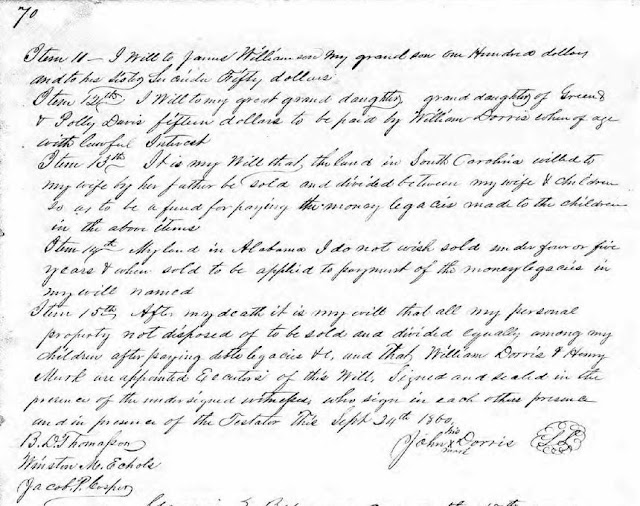 70
Item 11 - I Will to James Williamson my grand son one Hundred dollars
and to his Sister Lucinda Fifty dollars
Item 12th I Will to my great grand daughter grand daughter of Green
& Polly Davis fifteen dollars to be paid by William Dorris when of age
with lawful Interest
Item 13th It is my Will that the land in South Carolina willed to
my wife by her father be sold and divided between my wife & children
so as to be a fund for paying the money legacis made to the children
in the above items
Item 14th My land in Alabama I do not wish sold under four or five
years & when sold to be applied to payment of the money legacies in
my will named
Item 15th After my death it is my will that all my personal
property not disposed of to be sold and divided equally among my
children after paying debts legacies &c, and that William Dorris & Henry
are appointed Executors of this Will, Signed and sealed in the
presence of the undersigned witnesses who sign in each others presence
and in presence of the Testator this Sept 24th 1860,
John his x mark Dorris
B. D. Thomasson
Winston M. Echols
Jacob P.